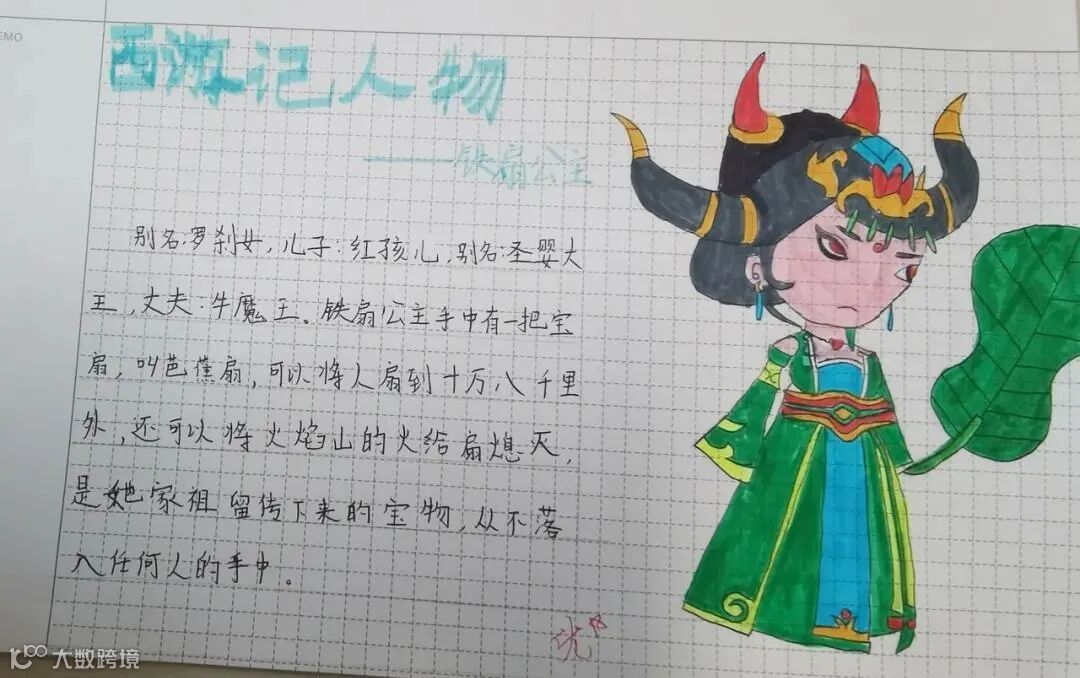 EMO
西游记人物
——铁扇公主
别名:罗刹女,儿子:红孩儿,别名:圣婴大
王,丈夫:牛魔王。铁扇公主手中有一把宝
扇,叫芭蕉扇,可以将人扇到十万八千里
外,还可以将火焰山的火给扇熄灭,
是她家祖留传下来的宝物,从不落
入任何人的手中。
大数跨境